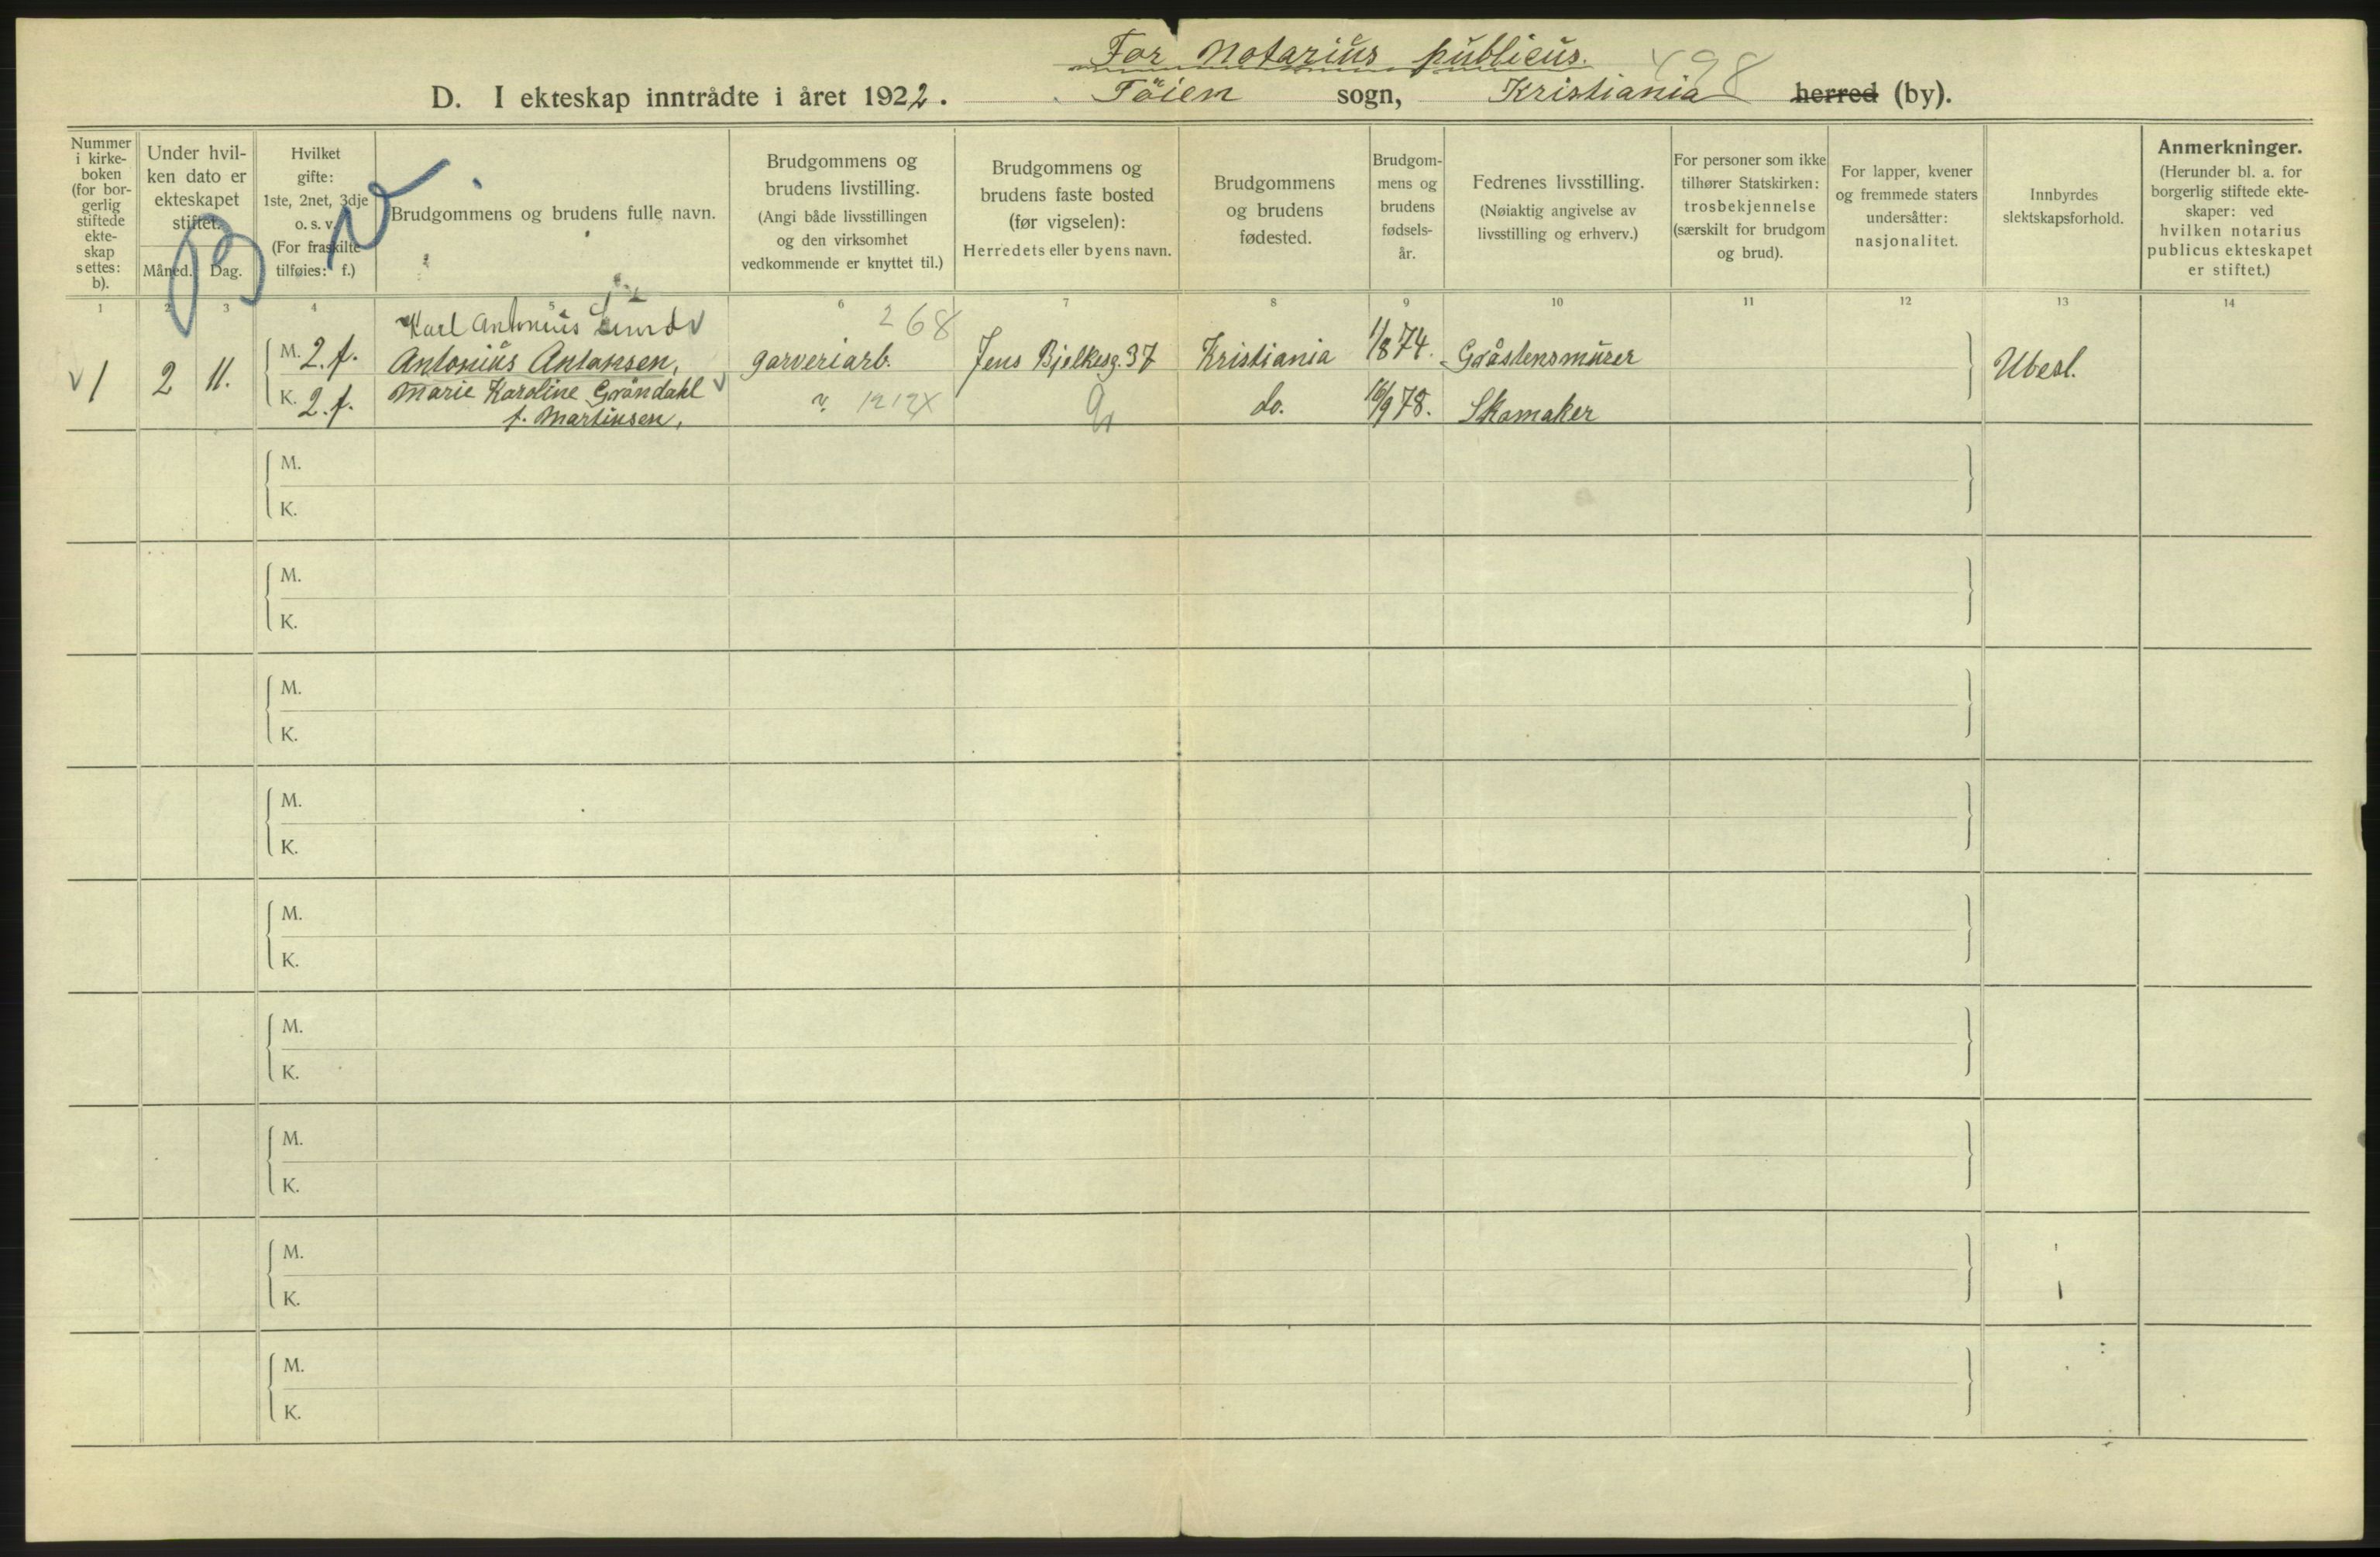 For Notarius publicus. 498
D. I ekteskap inntrådte i året 1922. Töien sogn, Kristiania herred (by).
Nummer i kirkeboken (for borgerlig stiftede ekteskap settes: b).
Under hvilken dato er ekteskapet stiftet.
Måned. Dag.
Hvilket gifte: 1ste, 2net, 3dje o. s. v. (For fraskilte tilføies: f.)
Brudgommens og brudens fulle navn.
Brudgommens og brudens livstilling. (Angi både livsstillingen og den virksomhet vedkommende er knyttet til.)
Brudgommens og brudens faste bosted (før vigselen): Herredets eller byens navn.
Brudgommens og brudens fødested.
Brudgommens og brudens fødselsår.
Fedrenes livsstilling. (Nøiaktig angivelse av livsstilling og erhverv.)
For personer som ikke tilhører Statskirken: trosbekjennelse (særskilt for brudgom og brud).
For lapper, kvener og fremmede staters undersåtter: nasjonalitet.
Innbyrdes slektskapsforhold.
Anmerkninger. (Herunder bl. a. for borgerlig stiftede ekteskaper: ved hvilken notarius publicus ekteskapet er stiftet.)
1 2 3 4 5 6 7 8 9 10 11 12 13 14
Karl Antonius Lund 268
1 2 11. M. 2. f. Antonius Antonsen, garveriarb. Jens Bjelkesg. 37 Kristiania 1/8 74. Gråstensmurer Ubesl.
K. 2. f. Marie Karoline Gröndahl do. 16/9 78. Skomaker
f. Martinsen.
M.
K.
M.
K.
M.
K.
M.
K.
M.
K.
M.
K.
M.
K.
M.
K.
M.
K.